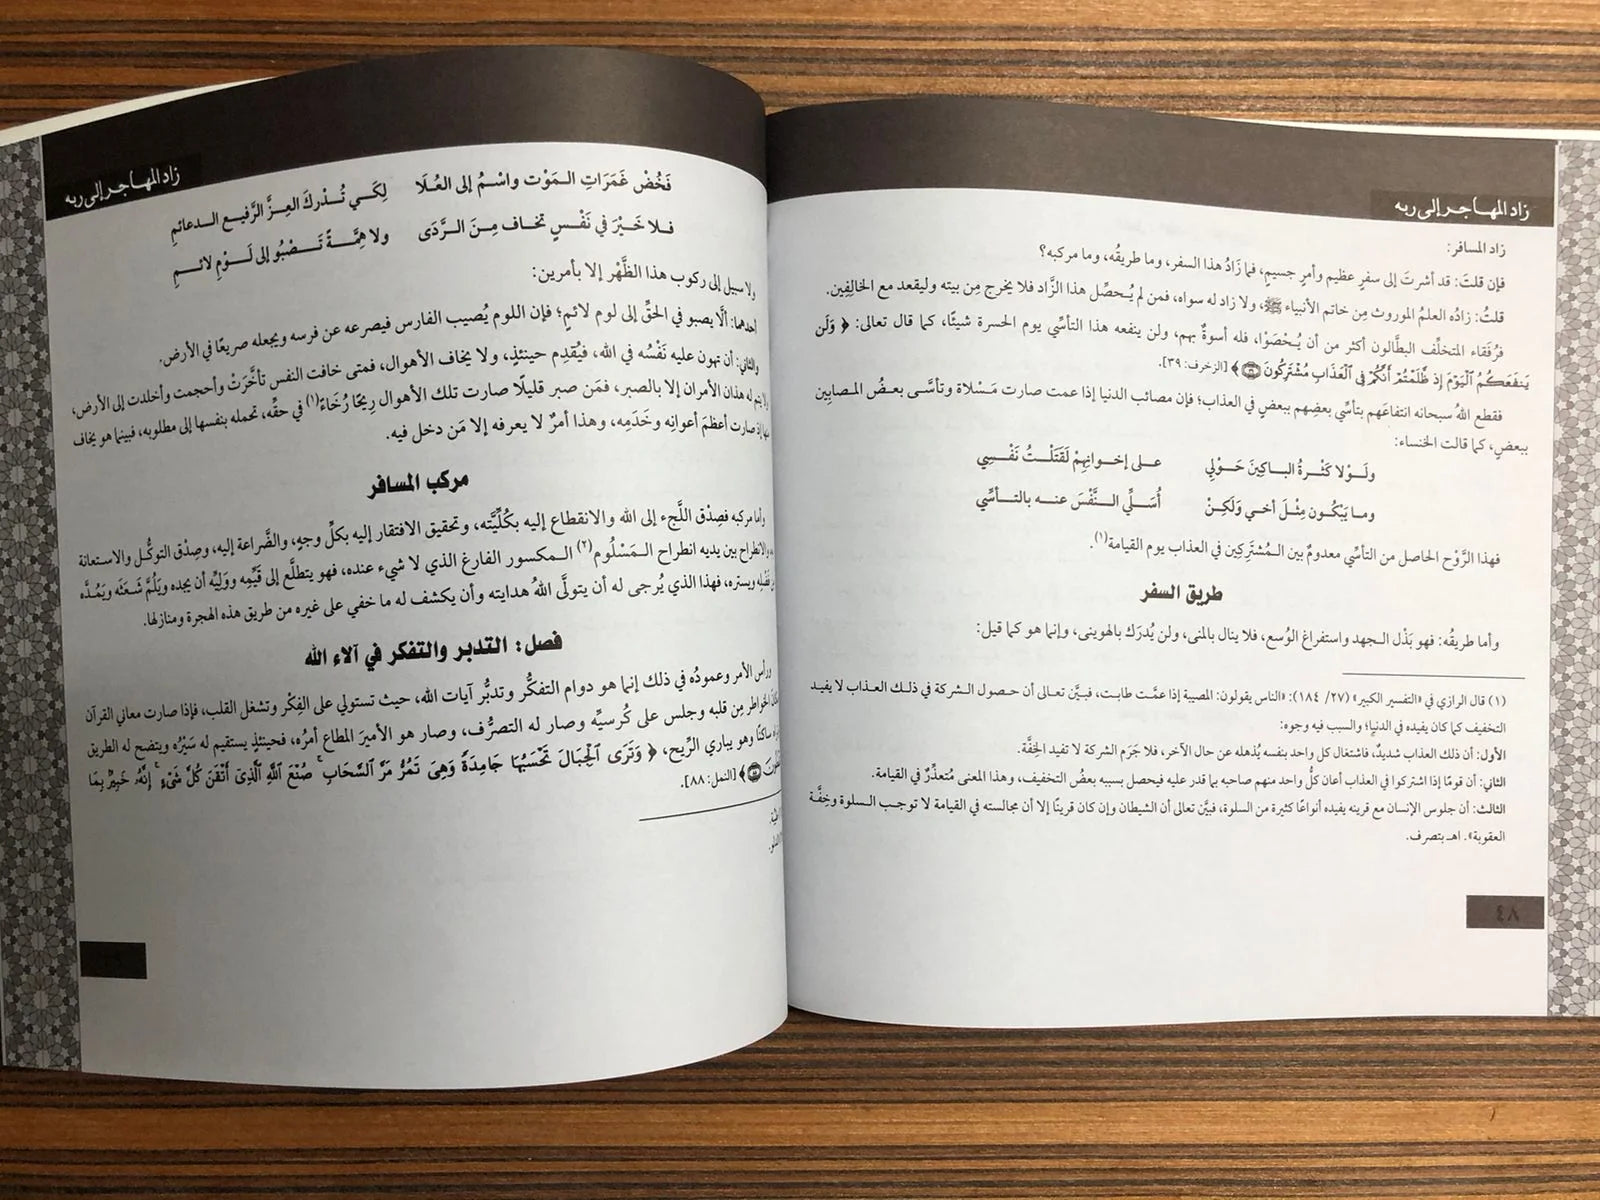 زاد المهاجر إلى ربه
زاد المسافر:
فإن قلتَ: قد أشرتَ إلى سفرٍ عظيم وأمرٍ جسيمٍ، فما زَادُ هذا السفر، وما طريقُه، وما مركبه؟
قلتُ: زادُه العلمُ الموروث مِن خاتم الأنبياء ﷺ، ولا زاد له سواه، فمن لم يُـحصِّل هذا الزَّاد فلا يخرج مِن بيته وليقعد مع الخالِفِين.
فرُفَقاء المتخلِّف البطَّالون أكثر من أن يُـحْصَوْا، فله أسوةٌ بهم، ولن ينفعه هذا التأسِّي يوم الحسرة شيئًا، كما قال تعالى: ﴿ وَلَن
يَنفَعَكُمُ ٱلْيَوْمَ إِذ ظَّلَمْتُمْ أَنَّكُمْ فِى ٱلْعَذَابِ مُشْتَرِكُونَ ٣٩ ﴾ [الزخرف: ٣٩].
فقطع اللهُ سبحانه انتفاعَهم بتأسِّي بعضِهم ببعضٍ في العذاب؛ فإن مصائب الدنيا إذا عمت صارت مَسْلاة وتأسَّى بعضُ المصابِين
ببعضٍ، كما قالت الخنساء:
ولَـوْلا كَثْـرةُ البـاكِينَ حَـوْلِي على إخـوانِهِمْ لَقَتَلْـتُ نَفْـسِي
وما يَبْكُـون مِثْـلَ أخـي وَلَكِـنْ أُسَـلِّي الـنَّفْسَ عنـه بالتـأسِّي
فهذا الرَّوْح الحاصل من التأسِّي معدومٌ بين المُشتَرِكِين في العذاب يوم القيامة(١).
طريق السفر
وأما طريقُه: فهو بَذْل الـجهد واستفراغ الوُسع، فلا ينال بالمنى، ولن يُدرَك بالهوينى، وإنما هو كما قيل:
(١) قال الرازي في «التفسير الكبير» (٢٧/ ١٨٤): «الناس يقولون: المصيبة إذا عمَّت طابت، فبيَّن تعالى أن حصول الشركة في ذلك العذاب لا يفيد
التخفيف كما كان يفيده في الدنيا؛ والسبب فيه وجوه:
الأول: أن ذلك العذاب شديدٌ، فاشتغال كل واحد بنفسه يُذهله عن حال الآخر، فلا جَرَم الشركة لا تفيد الخِفَّة.
الثاني: أن قومًا إذا اشتركوا في العذاب أعان كلُّ واحد منهم صاحبه بما قدر عليه فيحصل بسببه بعضُ التخفيف، وهذا المعنى مُتعذِّرٌ في القيامة.
الثالث: أن جلوس الإنسان مع قرينه يفيده أنواعًا كثيرة من السلوة، فبيَّن تعالى أن الشيطان وإن كان قرينًا إلا أن مجالسته في القيامة لا توجب السلوة وخِفَّة
العقوبة». اهـ بتصرف.
٤٨
زاد المهاجر إلى ربه
فَخُضْ غَمَرَاتِ المَوْت واسْـمُ إلى العُـلَا لِكَـي تُـدْركَ العِـزَّ الرَّفيـع الـدعائمِ
فـلا خَـيْرَ في نَفْـسٍ تخاف مِـنَ الـرَّدَى ولا هِمَّـةً تَـصْبُو إلى لَـوْمِ لائـمِ
ولا سبيل إلى ركوب هذا الظَّهْر إلا بأمرين:
أحدهما: ألَّا يصبو في الحقِّ إلى لوم لائمٍ؛ فإن اللوم يُصيب الفارس فيصرعه عن فرسه ويجعله صريعًا في الأرض.
والثاني: أن تهون عليه نَفْسُه في الله، فيُقدِم حينئذٍ، ولا يخاف الأهوال، فمتى خافت النفس تأخَّرَتْ وأحجمت وأخلدت إلى الأرض،
ولا يتم له هذان الأمران إلا بالصبر، فمَن صبر قليلًا صارت تلك الأهوال رِيحًا رُخَاءً(١) في حقِّه، تحمله بنفسها إلى مطلوبه، فبينما هو يخاف
منها إذ صارت أعظمَ أعوانِه وخَدَمِه، وهذا أمرٌ لا يعرفه إلا مَن دخل فيه.
مركب المسافر
وأما مركبه فصِدْق اللَّجء إلى الله والانقطاع إليه بكُلِّيَّته، وتحقيق الافتقار إليه بكلِّ وجهٍ، والضَّراعة إليه، وصِدْق التوكُّل والاستعانة
به، والانطراح بين يديه انطراح المَسْلُوم(٢) المكسور الفارغ الذي لا شيء عنده، فهو يتطلَّع إلى قَيِّمِه ووَلِيِّه أن يجده ويَلُمَّ شَعَثَه ويَمُدَّه
مِن فَضْلِه ويستره، فهذا الذي يُرجى له أن يتولَّى اللهُ هدايته وأن يكشف له ما خفي على غيره من طريق هذه الهجرة ومنازلها.
فصل: التدبر والتفكر في آلاء الله
ورأس الأمر وعمودُه في ذلك إنما هو دوام التفكُّر وتدبُّر آيات الله، حيث تستولي على الفِكْر وتشغل القلب، فإذا صارت معاني القرآن
مكانَ الخواطر مِن قلبه وجلس على كُرسيِّه وصار له التصرُّف، وصار هو الأميرَ المطاع أمرُه، فحينئذٍ يستقيم له سَيْرُه ويتضح له الطريق
ساكنًا وهو يباري الرِّيح، ﴿ وَتَرَى ٱلْجِبَالَ تَحْسَبُهَا جَامِدَةً وَهِىَ تَمُرُّ مَرَّ ٱلسَّحَابِ ۚ صُنْعَ ٱللَّهِ ٱلَّذِىٓ أَتْقَنَ كُلَّ شَىْءٍ ۚ إِنَّهُۥ خَبِيرٌۢ بِمَا
٨٨ ﴾ [النمل: ٨٨].